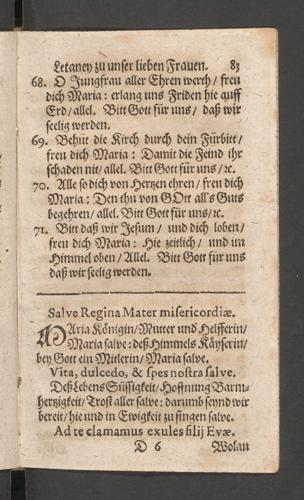 Letaney zu unser lieben Frauen. 83
68. O Jungfrau aller Ehren werth / freu
dich Maria : erlang uns Friden hie auff
Erd / allel. Bitt Gott für uns / daß wir
seelig werden.
69. Behüt die Kirch durch dein Fürbitt /
freu dich Maria : Damit die Feind ihr
schaden nit / allel. Bitt Gott für uns / ꝛc.
70. Alle so dich von Hertzen ehren / freu dich
Maria : Den thu von GOtt all's Guts
begehren / allel. Bitt Gott für uns / ꝛc.
71. Bitt daß wir Jesum / und dich loben /
freu dich Maria : Hie zeitlich / und im
Himmel oben / Allel. Bitt Gott für uns
daß wir seelig werden.
Salve Regina Mater misericordiæ.
MAria Königin / Mutter und Helfferin /
Maria salve : deß Himmels Käyserin /
bey Gott ein Mitlerin / Maria salve.
Vita, dulcedo, & spes nostra salve.
Deß Lebens Süssigkeit / Hoffnung Barm-
hertzigkeit / Trost aller salve : darumb seynd wir
bereit / hie und in Ewigkeit zu singen salve.
Ad te clamamus exules filij Evæ.
D 6 Wolan